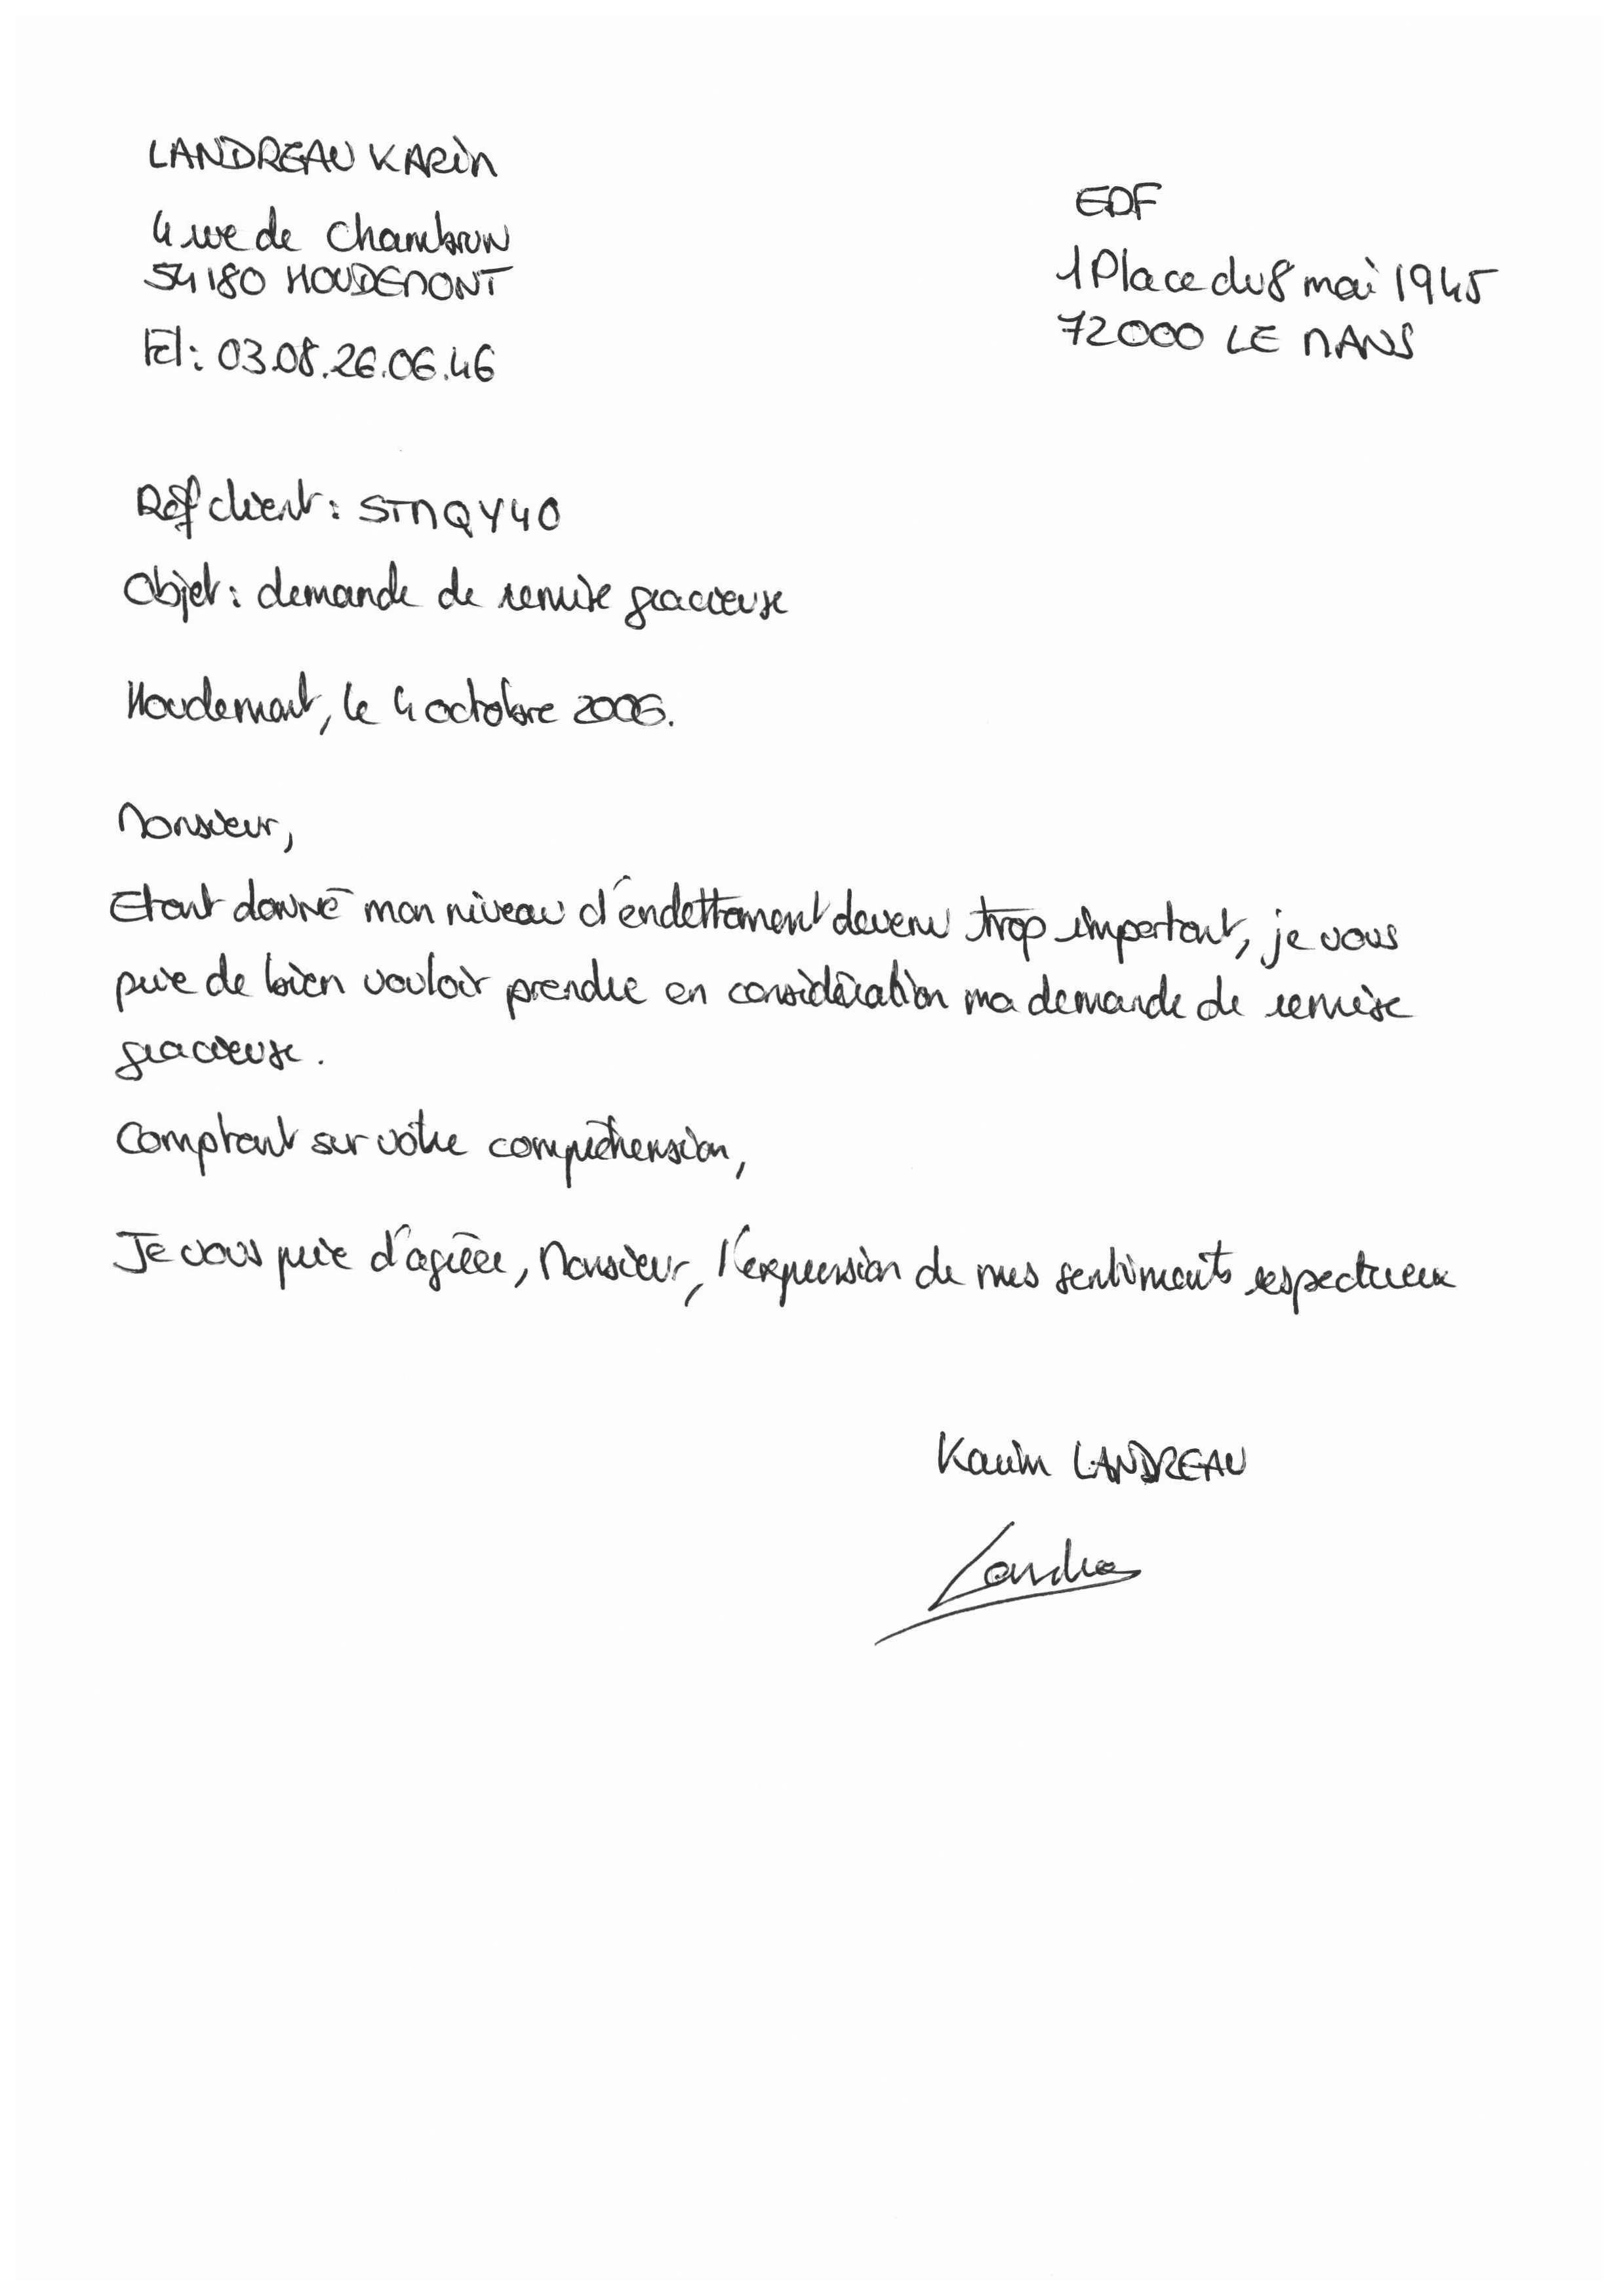 LANDREAU KARin
4 rue de Chambrun
54180 HOUDEMONT
Tél : 03.08.26.06.46
EDF
1 Place du 8 mai 1945
72000 LE MANS
Réf client : STMQY40
Objet : demande de remise gracieuse
Houdemont, le 4 octobre 2006.
Monsieur,
Etant donné mon niveau d'endettement devenu trop important, je vous
prie de bien vouloir prendre en considération ma demande de remise
gracieuse.
Comptant sur vôtre compréhension,
Je vous prie d'agréer, Monsieur, l'expression de mes sentiments respectueux
Karin LANDREAU
Landrea